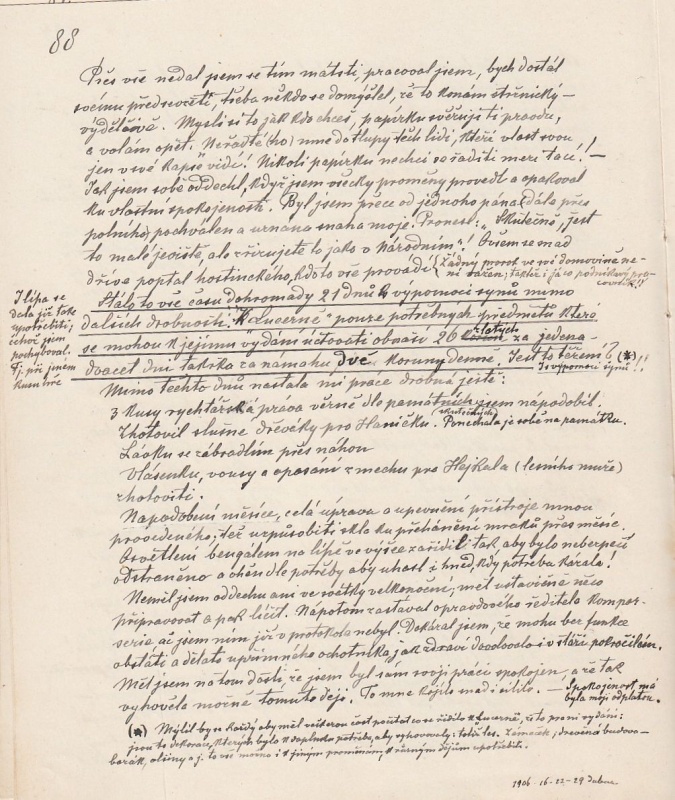 88
Přes vše nedal jsem se tím mátsti, pracoval jsem, bych dostál
svému předsevzetí, třeba někdo se domýšlel, že to konám
výdělečně. Mysli si to jak kdo chce, papírku svěřuji ti pravdu,
a volám opět. Neřaďte (ho) mne do tlupy těch lidí, kteří vlast svou
jen v své kapse vidí! Nikoli papírku nechci se řaditi mezi tací! —
Jak jsem sobě oddechl, když jsem všecky proměny provedl a opakoval
ku vlastní spokojenosti. Byl jsem přece od jednoho pána (dála přes
polního) pochválen a uznána snaha moje. Pronesl: „Skutečně, jest
to malé jeviště, ale zřizujete to jako v Národním"! Ovšem se snad
dříve poptal hostinského, kdo to vše provádí (Žádný prorok ve své domovině ne-
ní vážen; taktéž i já co podnikavý
Stálo to vše času dohromady 21 dnů k výpomoci synů mimo
dalších drobností. K „Lucerně" pouze potřebných předmětů které
se mohou k jejímu vydání účtovati obnáší 26 zlatých za jedena-
dvacet dnů takřka za námahu dvě koruny denně. Jest to
Is výpomocí synů!!
I lípa se
dala již tak
upotřebiti;
čehož jsem
pochyboval.
Tj. při jiném
kusu hře
Mimo těchto dnů nastala mi práce drobná ještě:
3 kusy rychtářská práva věrně dle památných jsem napodobil.
(skutečných)
Zhotovil slušné dřeváky pro Haničku. Ponechala je sobě na památku.
Lávku se zábradlím přes náhon
Vlásenku, vousy a opasání z mechu pro Hejkala (lesního muže)
zhotoviti.
Napodobení měsíce, celá úprava a upevnění přístroje mnou
provedeného; též uzpůsobiti skla ku přehánění mraků přes měsíc.
Osvětlení bengálem na lípě ve výšce zařídil tak aby bylo nebezpečí
odstraněno a oheň dle potřeby aby uhasl i hned, když potřeba kázala!
Neměl jsem oddechu ani ve svátky velkonoční; měl ustavičně něco
připravovat a pak líčit. Nápotom zastával opravdového ředitele kompar-
serie ač jsem ním již v protokola nebyl. Dokázal jsem, že mohu bez funkce
obstáti a dělat upřímného ochotníka jak zdraví dovolovalo i v stáří pokročilém.
Měl jsem na tom dosti, že jsem byl sám svojí prací spokojen, a že tak
vyhověla mocně tomuto ději. To mne hojilo nad jiné. — Spokojenost má
byla mojí odplatou.
(*) Mýlil by se každý aby měl veškerou část počítat co se zřídilo k Lucerně, že to první vydání:
jsou to dekorace, kterých bylo k doplňku potřeba, aby vyhovovaly: totiž les. Zámeček, dřevěná budova-
bazák, olšiny a j. to vše možno i k jiným proměnám, k různým dějům upotřebit.
1906 - 16 - 22 - 29 Dubna